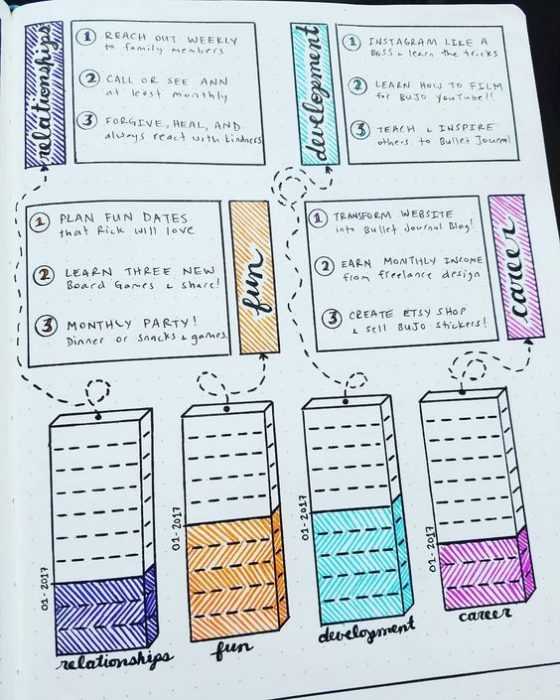 relationships
1 REACH OUT WEEKLY
to family members
2 CALL OR SEE ANN
at least monthly
3 FORGIVE, HEAL, AND
always react with kindness
development
1 INSTAGRAM LIKE A
BOSS & learn the tricks
2 LEARN HOW TO FILM
for BUJO YouTube!!
3 TEACH & INSPIRE
others to Bullet Journal
1 PLAN FUN DATES
that Rick will love
2 LEARN THREE NEW
Board Games & share!
3 MONTHLY PARTY!
Dinner or snacks & games
fun
1 TRANSFORM WEBSITE
into Bullet Journal Blog!
2 EARN MONTHLY INCOME
from freelance design
3 CREATE ETSY SHOP
& sell BUJO stickers!
career
01-2017
relationships
01-2017
fun
01-2017
development
01-2017
career